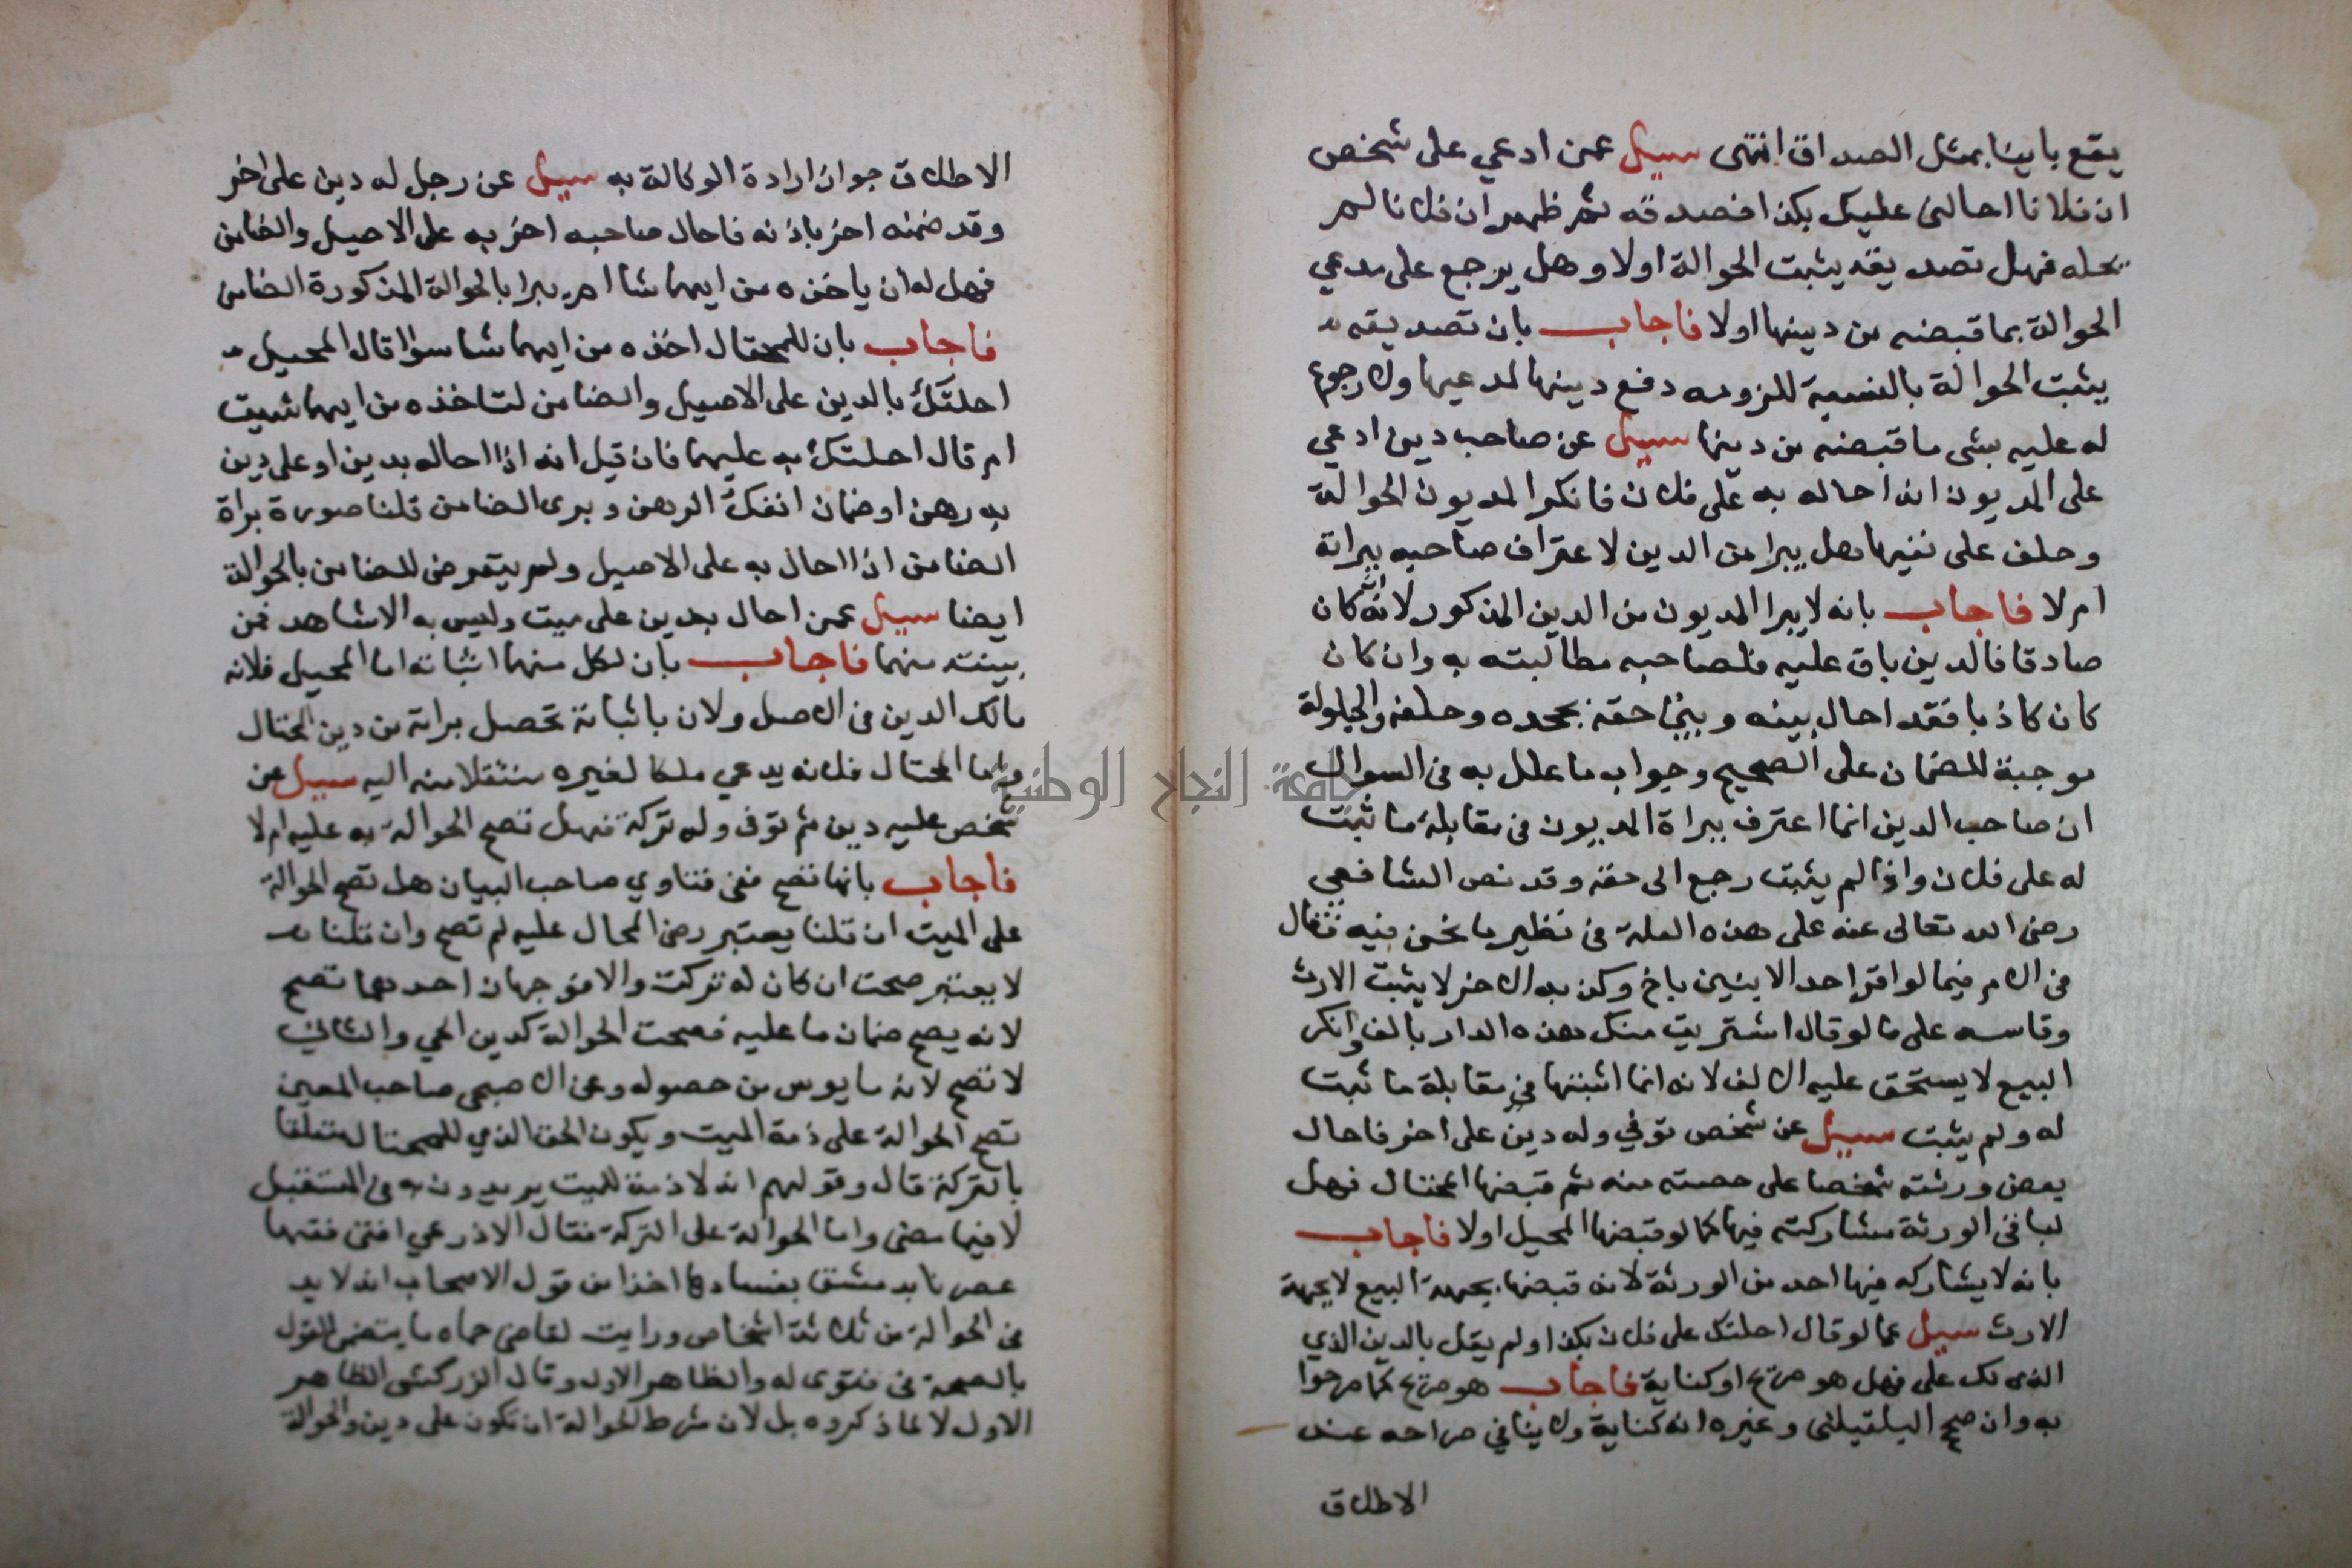 يقع باينا بمثل الصداق انتهى سيل عمن ادعي على شخص
ان فلانا احالنى عليك بكذا فصدقه ثم ظهر ان فلانا لم
يحله فهل تصديقه يثبت الحوالة اولا وهل يرجع على مدعي
الحوالة بما قبضه من دينها اولا فاجاب بان تصديقه
يثبت الحوالة بالنسبة للزومه دفع دينها لمدعيها ولا رجوع
له عليه بشى ما قبضه من دينها سيل عن صاحب دين ادعي
على المديون انه احاله به على فلان فانكر المديون الحوالة
وحلف على نفيها هل يبرا من الدين لاعتراف صاحبه ببراته
ام لا فاجاب بانه لا يبرا المديون من الدين المذكور لانه ان كان
صادقا فالدين باق عليه فلصاحبه مطالبته به وان كان
كان كاذبا فقد احال بينه وبين حقه بجحده وحلفه والحيلولة
موجبة للضمان على الصحيح وجواب ما علل به في السوال
ان صاحب الدين انما اعترف ببراة المديون في مقابلة ما ثبت
له على فلان واذا لم يثبت رجع الى حقه وقد نص الشافعي
رضى الله تعالى عنه على هذه العلة في نظير ما نحن فيه فقال
في الام فيما لو اقر احد الابنين باخ وكذبه الاخر لا يثبت الارث
وقاسه على ما لو قال اشتريت منك هذه الدار بالف وانكر
البيع لا يستحق عليه الالف لانه انما اثبتها في مقابلة ما ثبت
له ولم يثبت سيل عن شخص توفي وله دين على اخر فاحال
بعض ورثته شخصا على حصته منه ثم قبضها المحتال فهل
لباقى الورثة مشاركته فيها كما لو قبضها المحيل اولا فاجاب
بانه لا يشاركه فيها احد من الورثة لانه قبضها بجهة البيع لا بجهة
الارث سيل عما لو قال احلتك على فلان بكذا ولم يقل بالدين الذي
الذى لك على فهل هو صريح او كناية فاجاب هو صريح كما صرحوا
به وان صحح البلقينى وغيره انه كناية ولا ينافي صراحه عند
الاطلاق
الاطلاق جواز ارادة الوكالة به سيل عن رجل له دين على اخر
وقد ضمنه اخر باذنه فاحال صاحبه اخر به على الاصيل والضامن
فهل له ان ياخذه من ايهما شا ام يبرا بالحوالة المذكورة الضامن
فاجاب بان للمحتال اخذه من ايهما شا سوا قال المحيل
احلتك بالدين على الاصيل والضامن لتاخذه من ايهما شيت
ام قال احلتك به عليهما فان قيل انه اذا احاله بدين او على دين
به رهن او ضمان انفك الرهن وبرى الضامن قلنا صورة براة
الضامن اذا احال به على الاصيل ولم يتعرض للضامن بالحوالة
ايضا سيل عمن احال بدين على ميت وليس به الا شاهد فمن
يبينه منهما فاجاب بان لكل منهما اثباته اما المحيل فلانه
مالك الدين في الاصل ولان باثباته تحصل براته من دين المحتال
واما المحتال فلانه يدعي ملكا لغيره منتقلا منه اليه سيل عن
شخص عليه دين ثم توفى وله تركة فهل تصح الحوالة به عليه ام لا
فاجاب بانها تصح ففى فتاوي صاحب البيان هل تصح الحوالة
على الميت ان قلنا يعتبر رضى المحال عليه لم تصح وان قلنا
لا يعتبر صحت ان كان له تركة والا فوجهان احدهما تصح
لانه يصح ضمان ما عليه فصحت الحوالة كدين الحي والثاني
لا تصح لانه مايوس من حصوله وعن الاصبحى صاحب المعين
تصح الحوالة على ذمة الميت ويكون الحق الذي للمحتال متعلقا
بالتركة قال وقولهم انه لا ذمة للميت يريدون به في المستقبل
لا فيما مضى واما الحوالة على التركة فقال الاذرعي افتى فقها
عصرنا بدمشق بفسادها اخذا من قول الاصحاب انه لا بد
في الحوالة من ثلاثة اشخاص ورايت لقاضى حماه ما يقتضى القول
بالصحة في فتوى له والظاهر الاول وقال الزركشى الظاهر
الاول لا لما ذكروه بل لان شرط الحوالة ان تكون على دين والحوالة
جامعة النجاح الوطنية